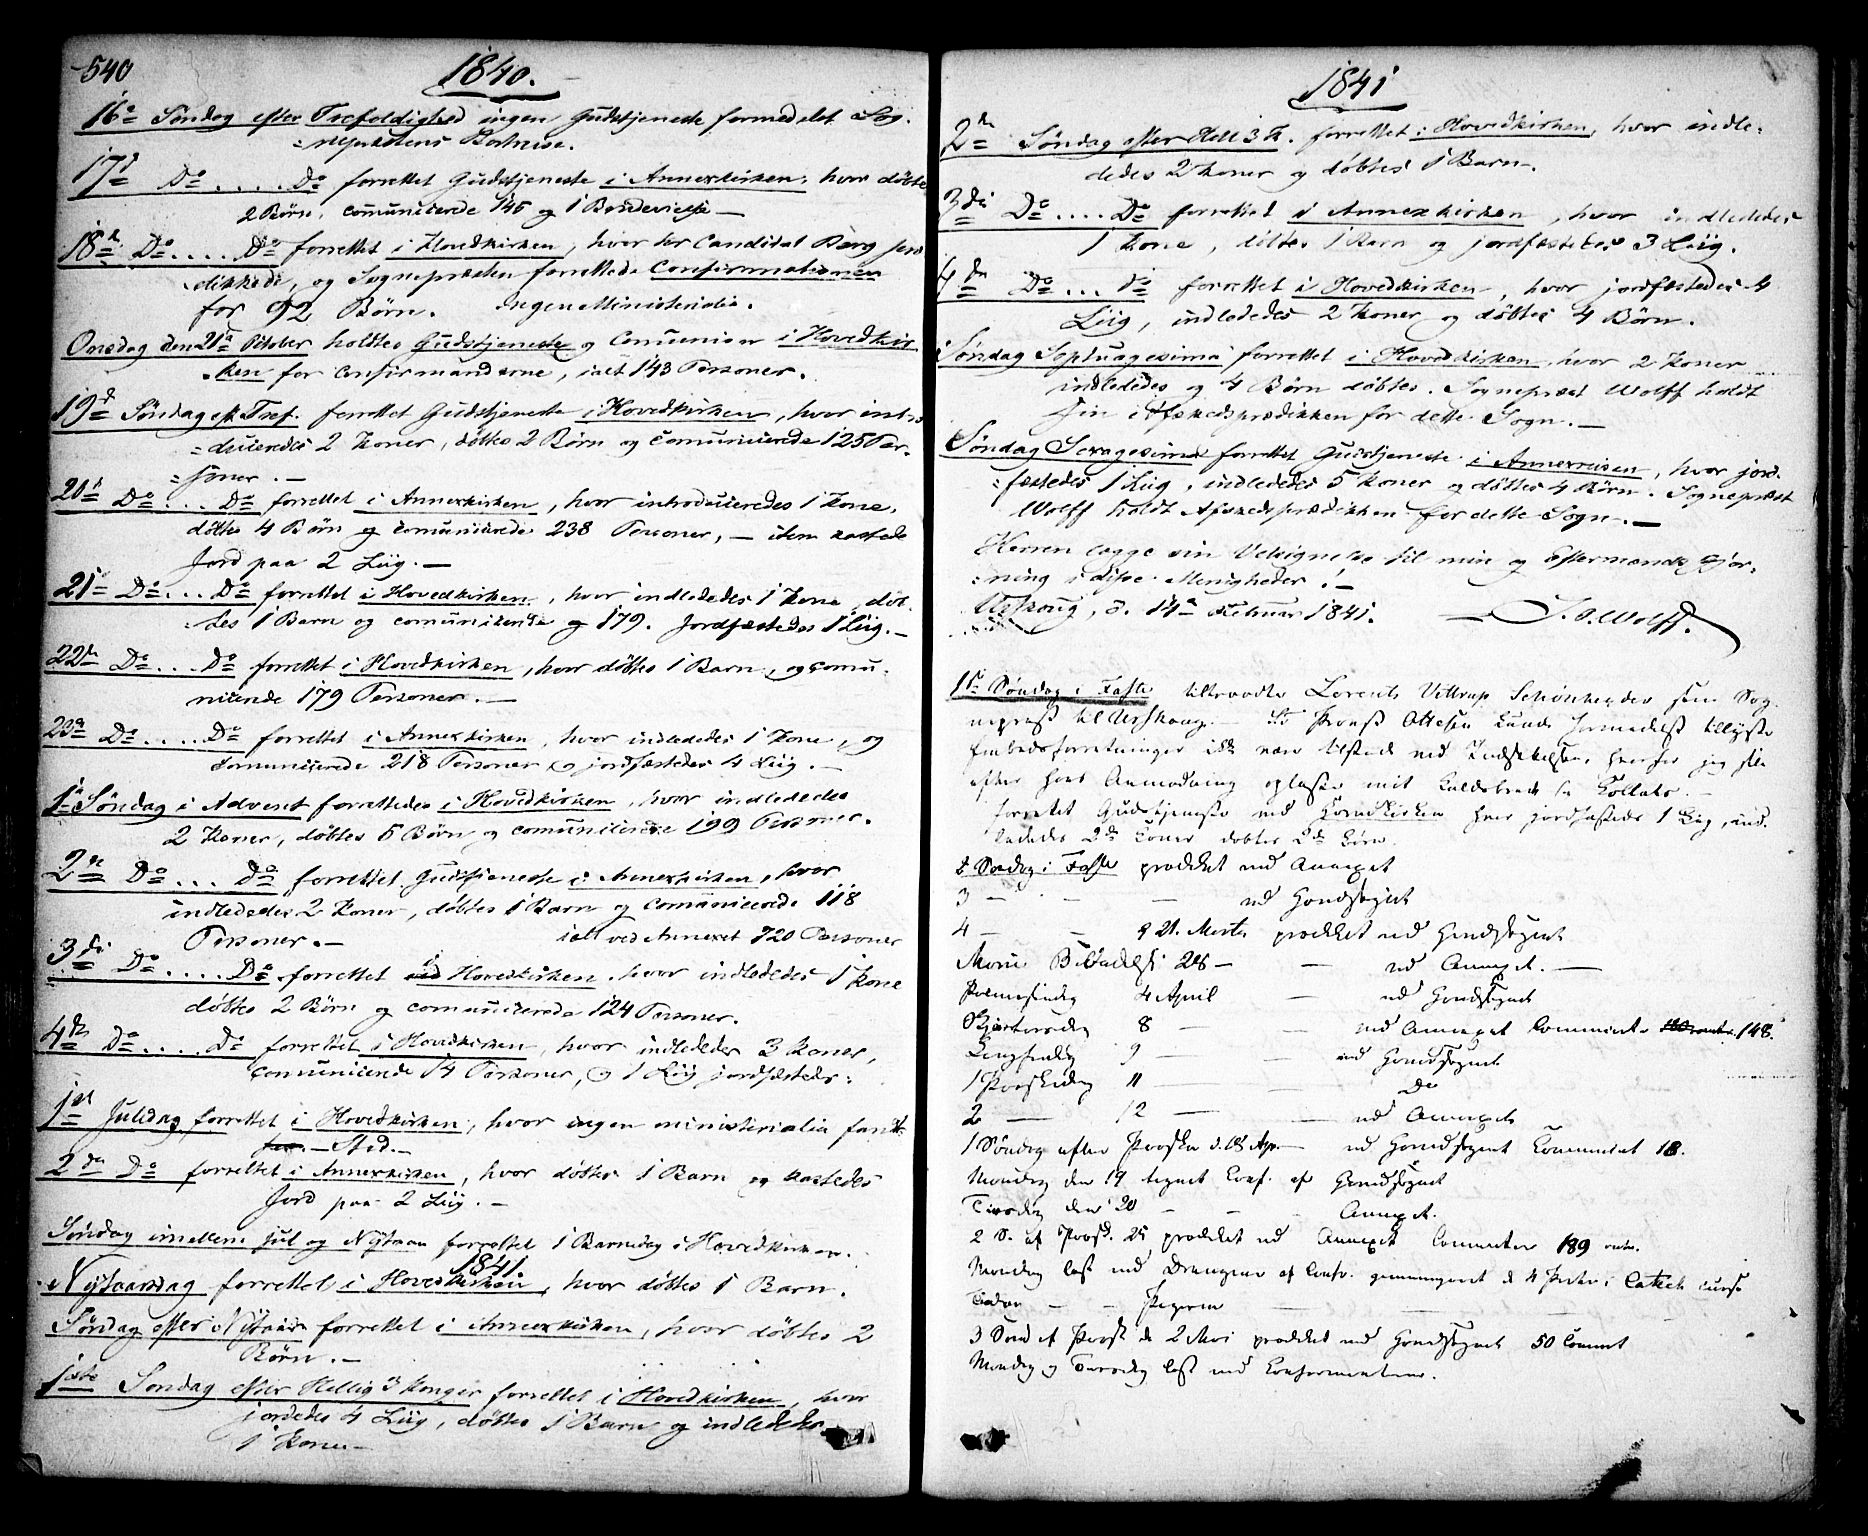 540
1840.
16de Søndag efter Trefoldighed ingen Gudstjeneste formedelst Sog-
nepræstens Bortreise.
17d Do .... Do forrettet Gudstjeneste i Annexkirken, hvor døbtes
2 Børn, comunicerede 145 og 1 Brudevielse —
18d Do .... Do forrettet i Hovedkirken, hvor Hr Candidat Berg præ-
dikkede, og Sognepræsten forrettede Confirmationen
for 92 Børn. Ingen Ministerialia.
Onsdag den 21d October holdtes Gudstjeneste og Comunion i Hovedkir-
ken for Confirmanderne, ialt 143 Personer.
19d Søndag eft. Tref. forrettet Gudstjeneste i Hovedkirken, hvor intro-
duceredes 2 Koner, døbtes 2 Børn og comunicerede 125 Per-
soner. —
20d Do ... Do forrettet i Annexkirken, hvor introduceredes 1 Kone,
døbtes 4 Børn og comunicerede 238 Personer, — item kastede
Jord paa 2 Liig. —
21d Do ... Do forrettet i Hovedkirken, hvor indlededes 1 Kone, døb-
tes 1 Barn og comunicerede 179. Jordfæstedes 1 Liig. —
22de Do ... Do forrettet i Hovedkirken, hvor døbtes 1 Barn, og comu-
nicerede 179 Personer. —
23d Do .... Do forrettet i Annexkirken, hvor indlededes 1 Kone, og
comunicerede 218 Personer og jordfæstedes 4 Liig. —
1ste Søndag i Advent forrettedes i Hovedkirken, hvor indlededes
2 Koner, døbtes 5 Børn og comunicerede 199 Personer.
2de Do ... do forrettet Gudstjeneste i Annexkirken, hvor
indlededes 2 Koner, døbtes 1 Barn og comunicerede 118
Personer. — ialt ved Annexet 720 Personer
3di Do .... Do forrettet i Hovedkirken, hvor indlededes 1 Kone
døbtes 2 Børn og comunicerede 124 Personer.
4de Do .... Do forrettet i Hovedkirken, hvor indlededes 3 Koner,
comunicerede 14 Personer, og 1 Liig jordfæstedes.
1ste Juledag forrettet i Hovedkirken, hvor ingen ministerialia fandt
Sted. —
2den Do forrettet i Annexkirken, hvor døbtes 1 Barn og kastedes
Jord paa 2 Liig. —
Søndag imellem Jul og Nytaar forrettet 1 Barnedag i Hovedkirken.
1841.
Nytaarsdag forrettet i Hovedkirken, hvor døbtes 1 Barn.
Søndag efter Nytaar forrettet i Annexkirken, hvor døbtes 2
Børn. —
1ste Søndag efter Hellig 3 Konger forrettet i Hovedkirken, hvor
jordedes 4 Liig, døbtes 1 Barn og indlededes
1 Kone —
1841
2den Søndag efter Hell. 3 K. forrettet i Hovedkirken, hvor indle-
dedes 2 Koner og døbtes 1 Barn —.
3di Do .... Do forrettet i Annexkirken, hvor indlededes
1 Kone, døbtes 1 Barn og jordfæstedes 3 Liig.
4de Do ... do forrettet i Hovedkirken, hvor jordfæstedes 4
Liig, indlededes 2 Koner og døbtes 4 Børn.
Søndag Septuagesima forrettet i Hovedkirken, hvor 2 Koner
indlededes og 4 Børn døbtes. Sognepræst Wolff holdt
sin Afskedsprædikken for dette Sogn. —
Søndag Sexagesima forrettet Gudstjeneste i Annexkirken, hvor jord-
fæstedes 1 Liig, indlededes 5 Koner og døbtes 4 Børn. Sognepræst
Wolff holdt Afskedsprædikken for dette Sogn. —
Herren lægge sin Velsignelse til min og Eftermands Gjer-
ning i disse Menigheder! —
Urskoug, d. 14de Februar 1841. J. O. Wolff.
1ste Søndag i Faste tiltraadte Lorents Vittrup Schönheyder som Sog-
nepræst til Urskoug. — Da Provst Ottesen Lunde formedelst tillyste
Embedsforretninger ikke var tilstede ved Indsættelsen, hvorfor jeg selv
efter hans Anmodning oplæste mit Kaldsbrev og Collats. —
forrettet Gudstjeneste ved Hovedkirken hvor jordfæstedes 1 Liig, ind-
lededes 2de Koner døbtes 2de Børn
2 Søndag i Faste prædiket ved Annexet
3 — — — ved Hovedsognet
4 — — d 21. Marts prædiket ved Hovedsognet
Mariæ Bebudelse 25 — — ved Annexet. —
Palmesøndag 4 April — ved Hovedsognet
Skjærtorsdag 8 — — ved Annexet Communic. 148.
Langfredag 9 — — ved Hovedsognet
1 Paaskedag 11 — — Do
2 — 12 — — ved Annexet
1 Søndag efter Paaske d. 18 Ap. — ved Hovedsognet Communicat 18.
Mandag den 19 tegnet Conf. af Hovedsognet
Tirsdag den 20 — — — Annexet.
2 S. ef Paask. 25 prædiket ved Annexet Communicer 189
Mandag læst med Drengene af Conf. gjennemgaaet d 4 Parter i
Tirsdag — — Pigerne — —
3 Sønd ef Paask d. 2 Mai prædiket ved Hovedsognet 50 Commt
Mandag og Tirsdag læst med Confirmanterne.